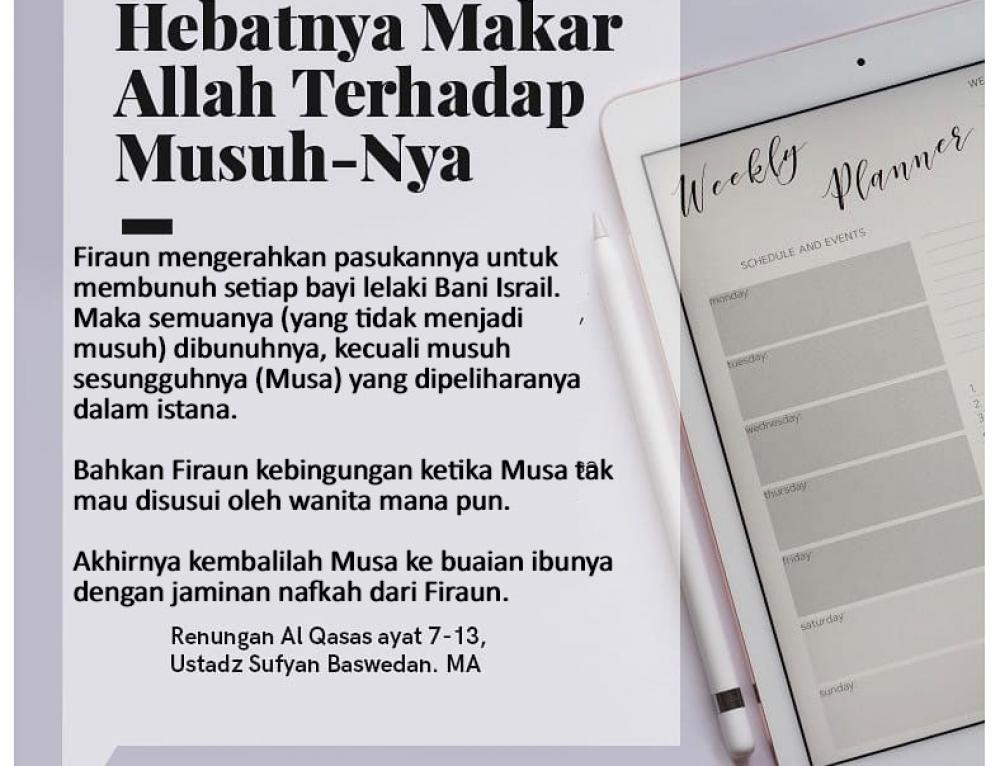 Hebatnya Makar
Allah Terhadap
Musuh-Nya
Firaun mengerahkan pasukannya untuk
membunuh setiap bayi lelaki Bani Israil.
Maka semuanya (yang tidak menjadi
musuh) dibunuhnya, kecuali musuh
sesungguhnya (Musa) yang dipeliharanya
dalam istana.
Bahkan Firaun kebingungan ketika Musa tak
mau disusui oleh wanita mana pun.
Akhirnya kembalilah Musa ke buaian ibunya
dengan jaminan nafkah dari Firaun.
Renungan Al Qasas ayat 7-13,
Ustadz Sufyan Baswedan. MA
Weekly Planner
SCHEDULE AND EVENTS
monday:
tuesday:
wednesday:
thursday:
friday:
saturday:
sunday:
WE
1.
2.
3